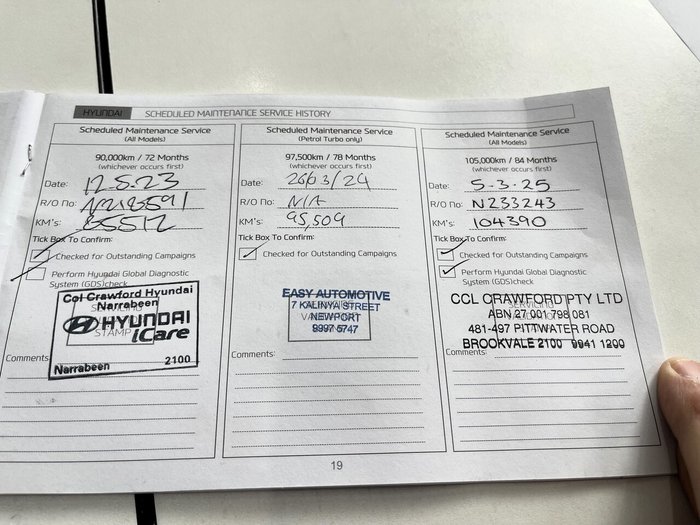 HYUNDAI SCHEDULED MAINTENANCE SERVICE HISTORY
Scheduled Maintenance Service
(All Models)
90,000km / 72 Months
(whichever occurs first)
Date: 12.5.23
R/O No: N218591
KM's: 85512
Tick Box To Confirm:
Checked for Outstanding Campaigns
Perform Hyundai Global Diagnostic
System (GDS)check
Col Crawford Hyundai
Narrabeen
HYUNDAI
iCare
STAMP
Narrabeen 2100
Comments:
Scheduled Maintenance Service
(Petrol Turbo only)
97,500km / 78 Months
(whichever occurs first)
Date: 26/03/24
R/O No: N/A
KM's: 95,509
Tick Box To Confirm:
Checked for Outstanding Campaigns
EASY AUTOMOTIVE
7 KALINYA STREET
NEWPORT
9997 5747
Comments:
Scheduled Maintenance Service
(All Models)
105,000km / 84 Months
(whichever occurs first)
Date: 5-3-25
R/O No: N233243
KM's: 104390
Tick Box To Confirm:
Checked for Outstanding Campaigns
Perform Hyundai Global Diagnostic
System (GDS)check
CCL CRAWFORD PTY LTD
ABN 27 001 798 081
481-497 PITTWATER ROAD
BROOKVALE 2100 9941 1200
Comments:
19